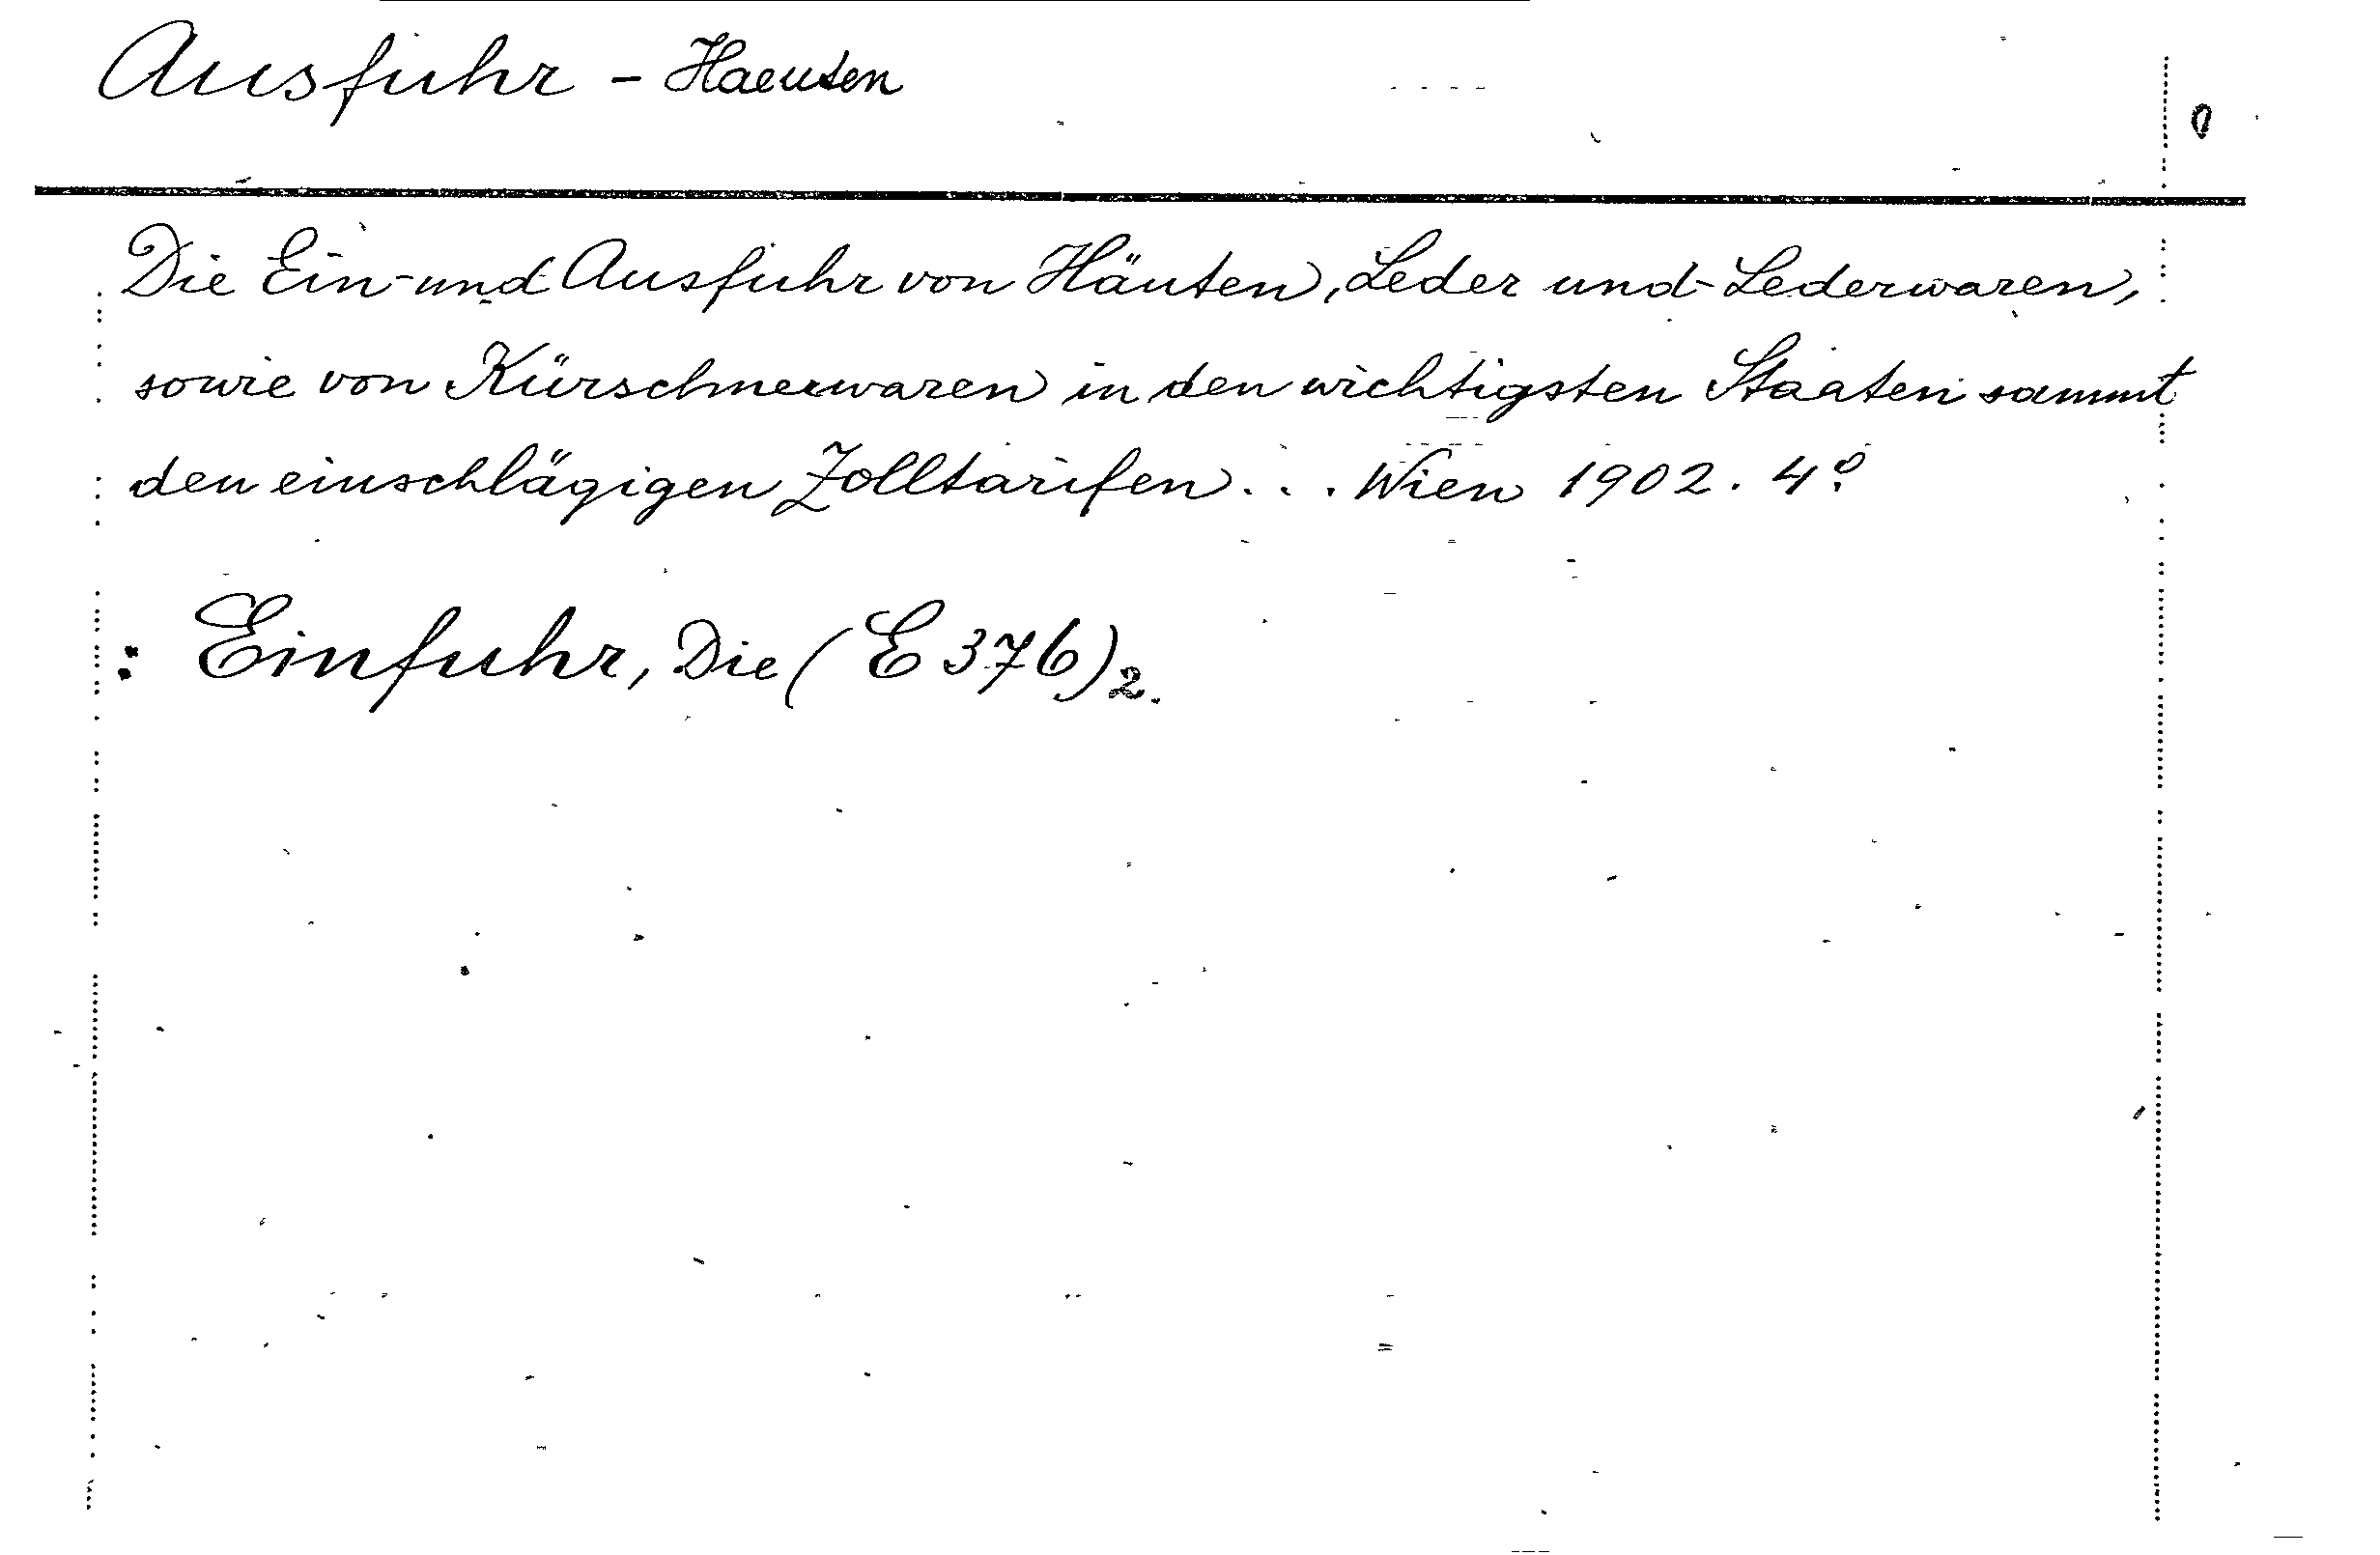 Ausfuhr - Haeuten
Die Ein- und Ausfuhr von Häuten, Leder und Lederwaren,
sowie von Kürschnerwaren in den wichtigsten Staaten sammt
den einschlägigen Zolltarifen... Wien 1902. 4º
: Einfuhr, Die (E 376)2.